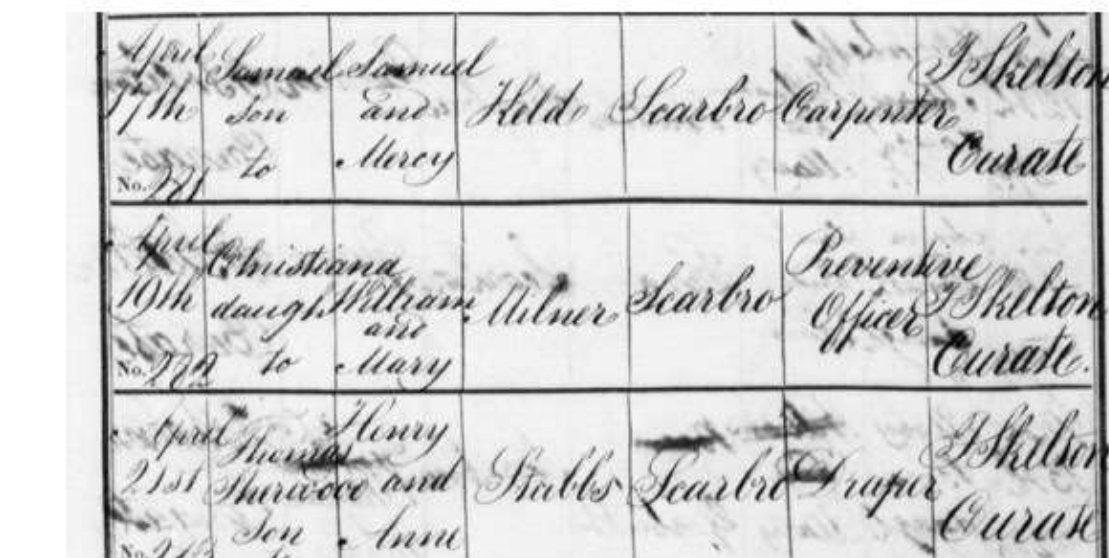 April
17th
No. 271
Samuel
Son
to
Samuel
and
Mercy
Held
Scarbro
Carpenter
J Skelton
Curate
April
19th
No. 272
Christiana
daugh
to
William
and
Mary
Milner
Scarbro
Preventive
Officer
J Skelton
Curate.
April
21st
No.
Thomas
Sherwood
Son
to
Henry
and
Anne
Stubbs
Scarbro
Draper
J Skelton
Curate